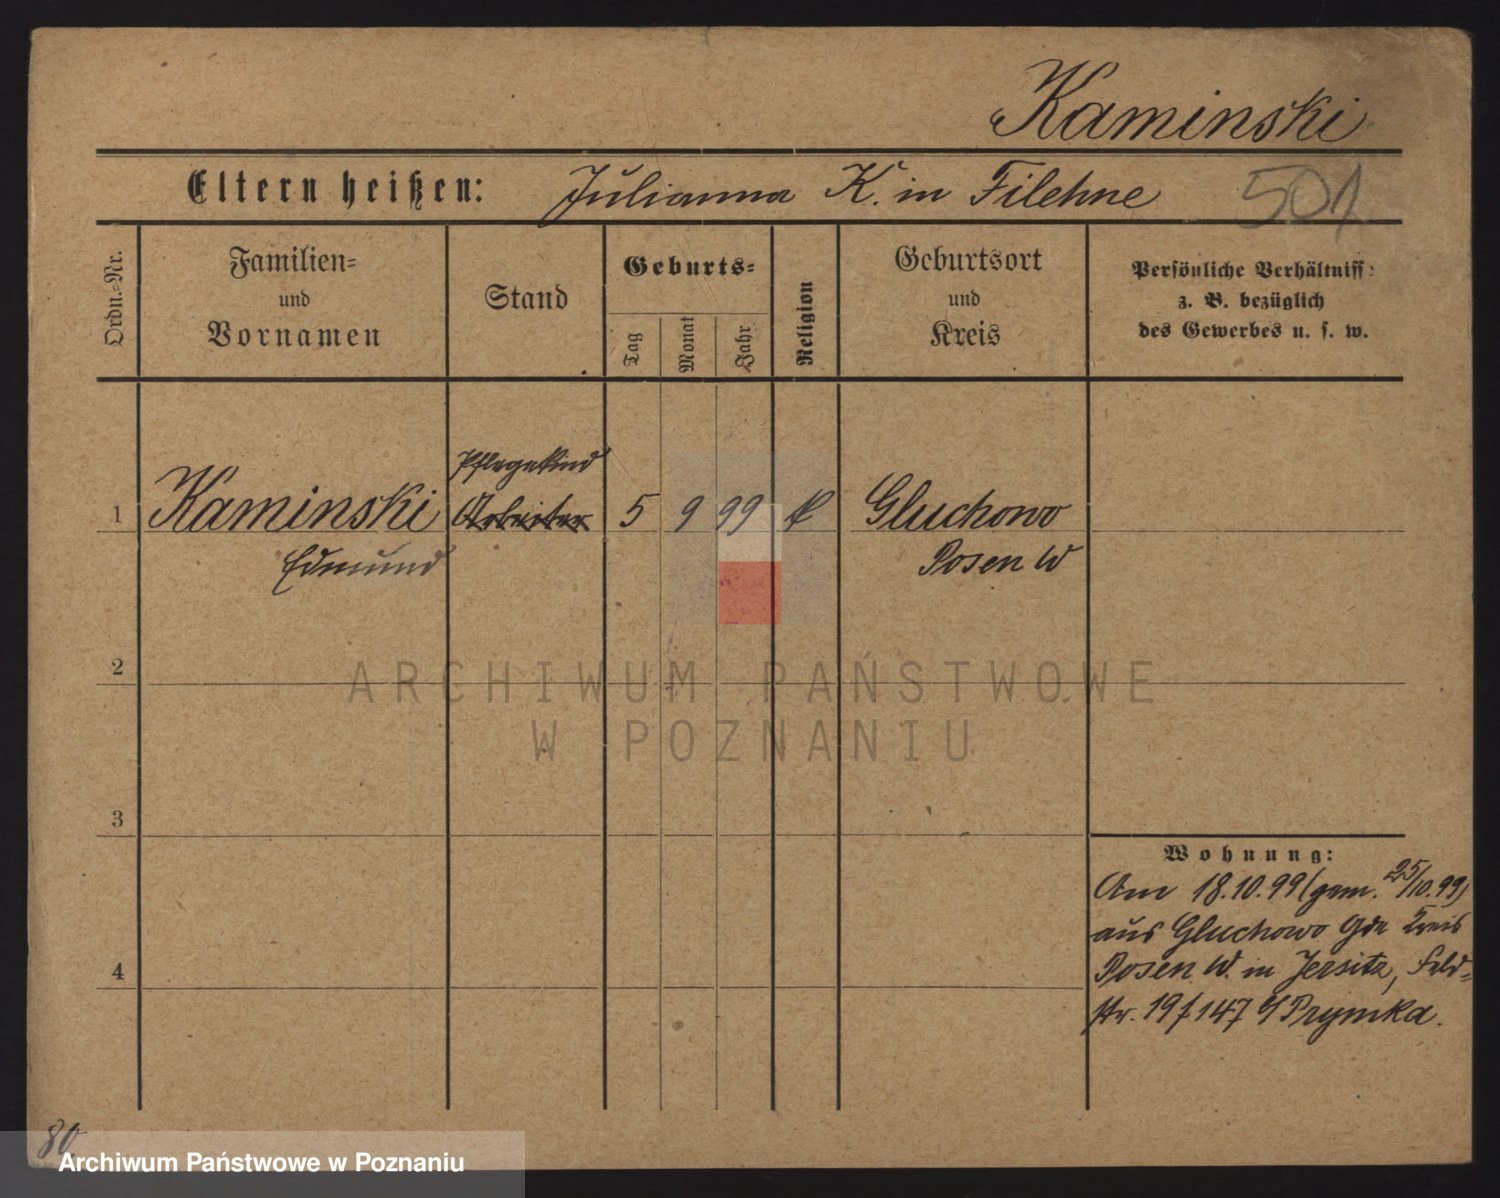 Kaminski
Eltern heißen: Julianna K. in Filehne 501
Ordn.-Nr.
Familien-
und
Vornamen
Stand
Geburts-
Tag
Monat
Jahr
Religion
Geburtsort
und
Kreis
Persönliche Verhältniss:
z. B. bezüglich
des Gewerbes u. s. w.
Pflegekind
1 Kaminski Arbeiter 5 9 99 k Gluchowo
Edmund Posen W
2
3
4
Wohnung:
Am 18.10.99 (gem. 25/10.99)
aus Gluchowo Gde Kreis
Posen W. in Jersitz, Feld-
str. 19/147 b/Prymka.
80
ARCHIWUM PAŃSTWOWE
W POZNANIU
Archiwum Państwowe w Poznaniu